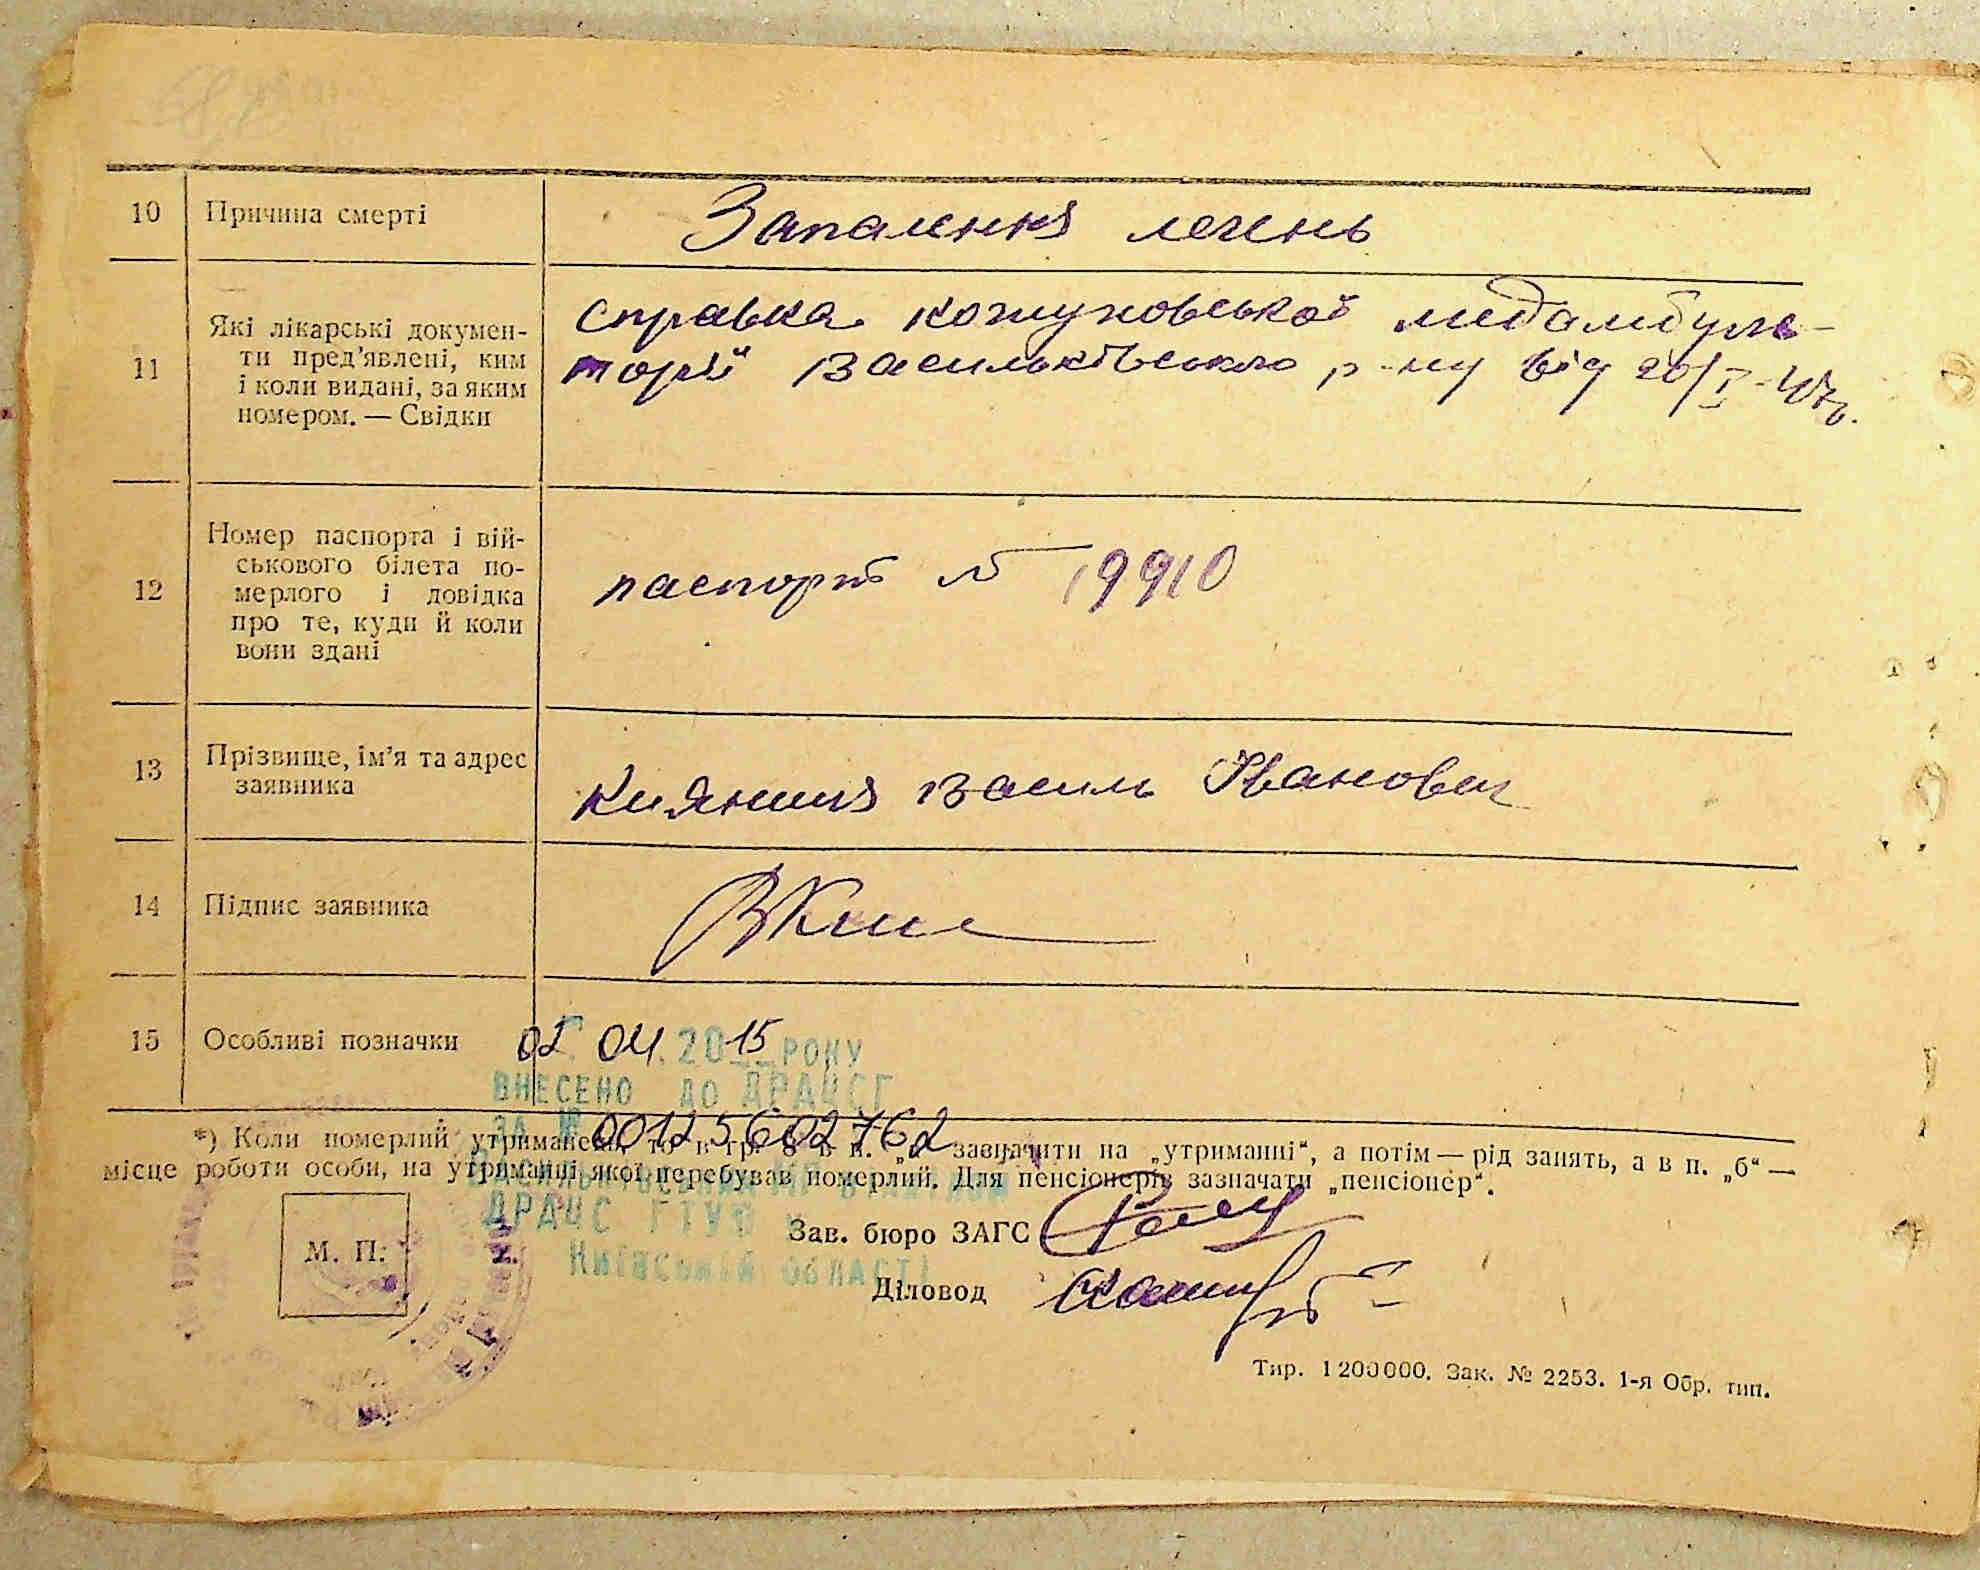 10 Причина смерті Запалення легень
11 Які лікарські докумен-
ти пред'явлені, ким
і коли видані, за яким
номером. — Свідки
справка кожуховської медамбуля-
торії Васильківського р-ну від 20/I-47р.
12 Номер паспорта і вій-
ськового білета по-
мерлого і довідка
про те, куди й коли
вони здані
паспорт № 19910
13 Прізвище, ім'я та адрес
заявника
Кияниця Василь Іванович
14 Підпис заявника
15 Особливі позначки
02 04. 2015 РОКУ
ВНЕСЕНО ДО ДРАЦСГ
ЗА № 00125602762
*) Коли померлий утриманець, то в гр. 8 в п. „а“ зазначити на „утриманні“, а потім — рід занять, а в п. „б“ —
місце роботи особи, на утриманні якої перебував померлий. Для пенсіонерів зазначати „пенсіонер“.
ДРАЦС ГТУЮ у
Київській ОБЛАСТІ
М. П.
Зав. бюро ЗАГС
Діловод
Тир. 1200000. Зак. № 2253. 1-я Обр. тип.